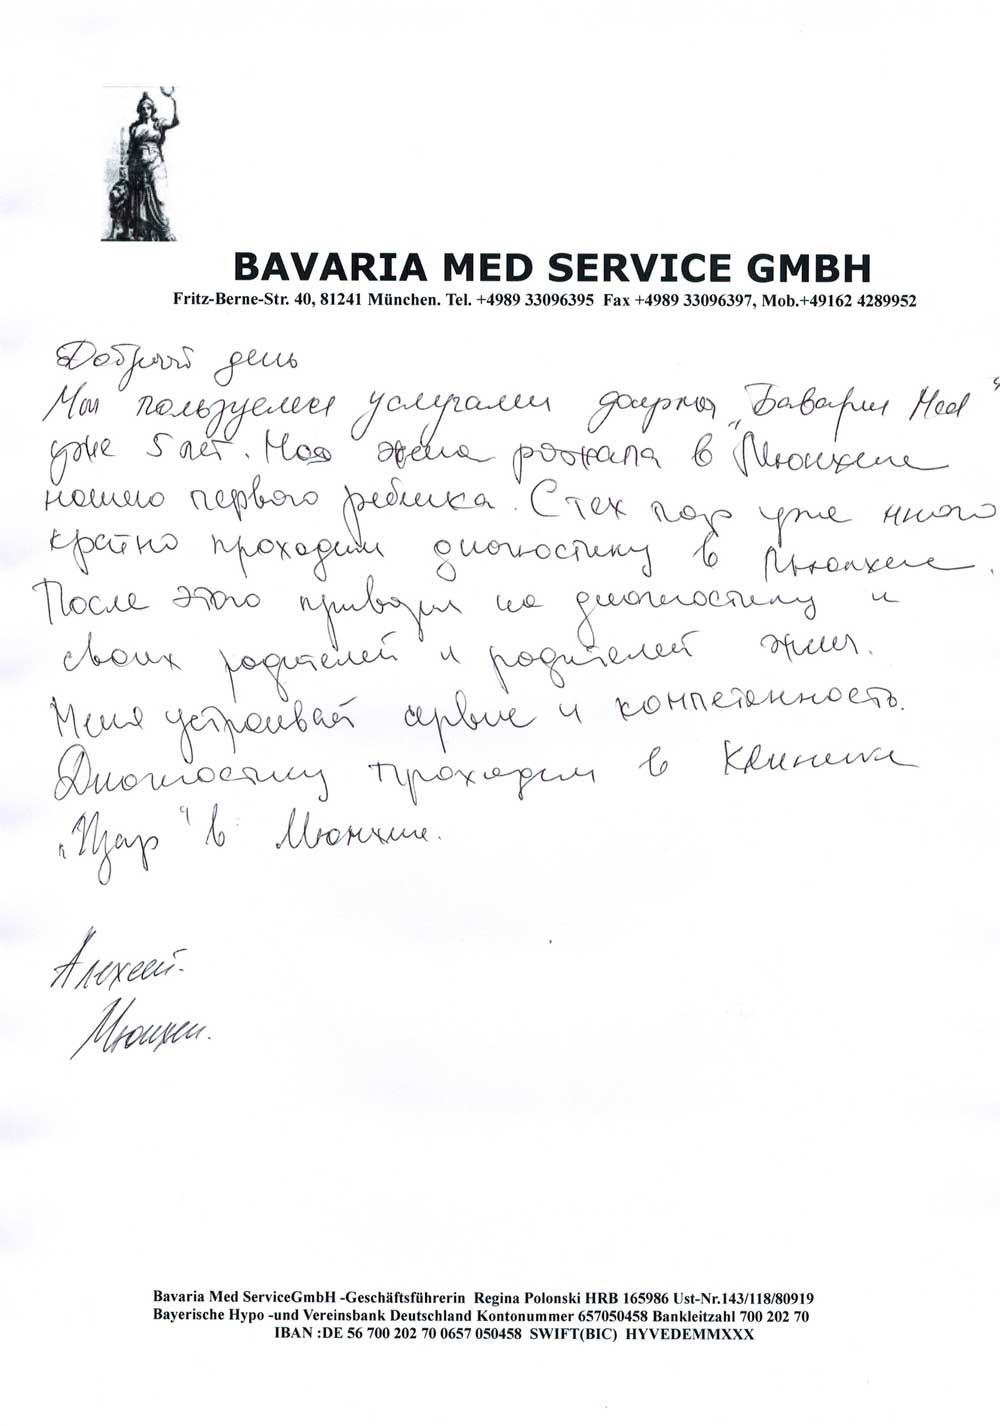 BAVARIA MED SERVICE GMBH
Fritz-Berne-Str. 40, 81241 München. Tel. +4989 33096395 Fax +4989 33096397, Mob.+49162 4289952
Добрый день
Мы пользуемся услугами фирмы „Бавария Med"
уже 5 лет. Моя жена рожала в Мюнхене
нашего первого ребенка. С тех пор уже много
кратно проходим диагностику в Мюнхене.
После этого привозил на диагностику и
своих родителей и родителей жены.
Меня устраивает сервис и компетенность.
Диагностику проходим в Клинике
„Изар" в Мюнхене.
Алексей.
Мюнхен.
Bavaria Med ServiceGmbH -Geschäftsführerin Regina Polonski HRB 165986 Ust-Nr.143/118/80919
Bayerische Hypo -und Vereinsbank Deutschland Kontonummer 657050458 Bankleitzahl 700 202 70
IBAN :DE 56 700 202 70 0657 050458 SWIFT(BIC) HYVEDEMMXXX